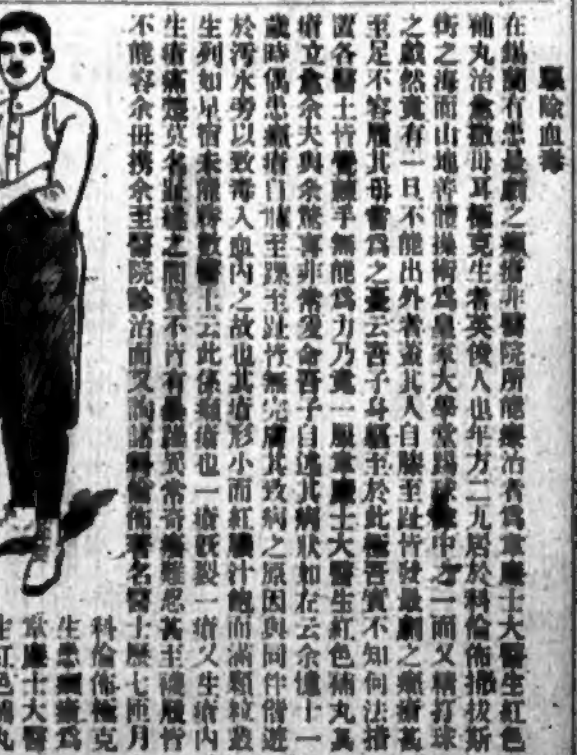 驅除血毒
在錫蘭有患最劇之癩瘡非醫院所能療治者爲韋廉士大醫生紅色
補丸治愈撒毋耳梅克生者英俊人也年方二九居於科倫佈掃拔斯
街之海而山地善體操術爲皇家大學堂踢球隊中之一而又精打球
之戲然竟有一旦不能出外者蓋其人自膝至趾皆發最劇之癩瘡甚
至足不容履其母嘗爲之憂云吾子身軀至於此極吾實不知何法措
置各醫士皆覺棘手無能爲力乃竟一服韋廉士大醫生紅色補丸其
瘡立愈余夫與余驚喜非常爰命吾子自述其病狀如左云余憶十一
歲時偶患癩瘡自膝至踝至趾皆無完膚其致病之原因與同伴偕遊
於污水旁以致毒入血內之故也其瘡形小而紅膿汁飽而滿顆粒叢
生列如星宿未能悉數醫士云此係癩瘡也一瘡既裂一瘡又生瘡內
生瘡痛楚莫名壯健之閒爲不皆有異常奇癢難忍甚至襪履皆
不能容余毋携余至醫院診治而又詢諸科倫佈著名醫士歷七匝月
科倫佈梅克
生患癩瘡爲
韋廉士大醫
生紅色補丸